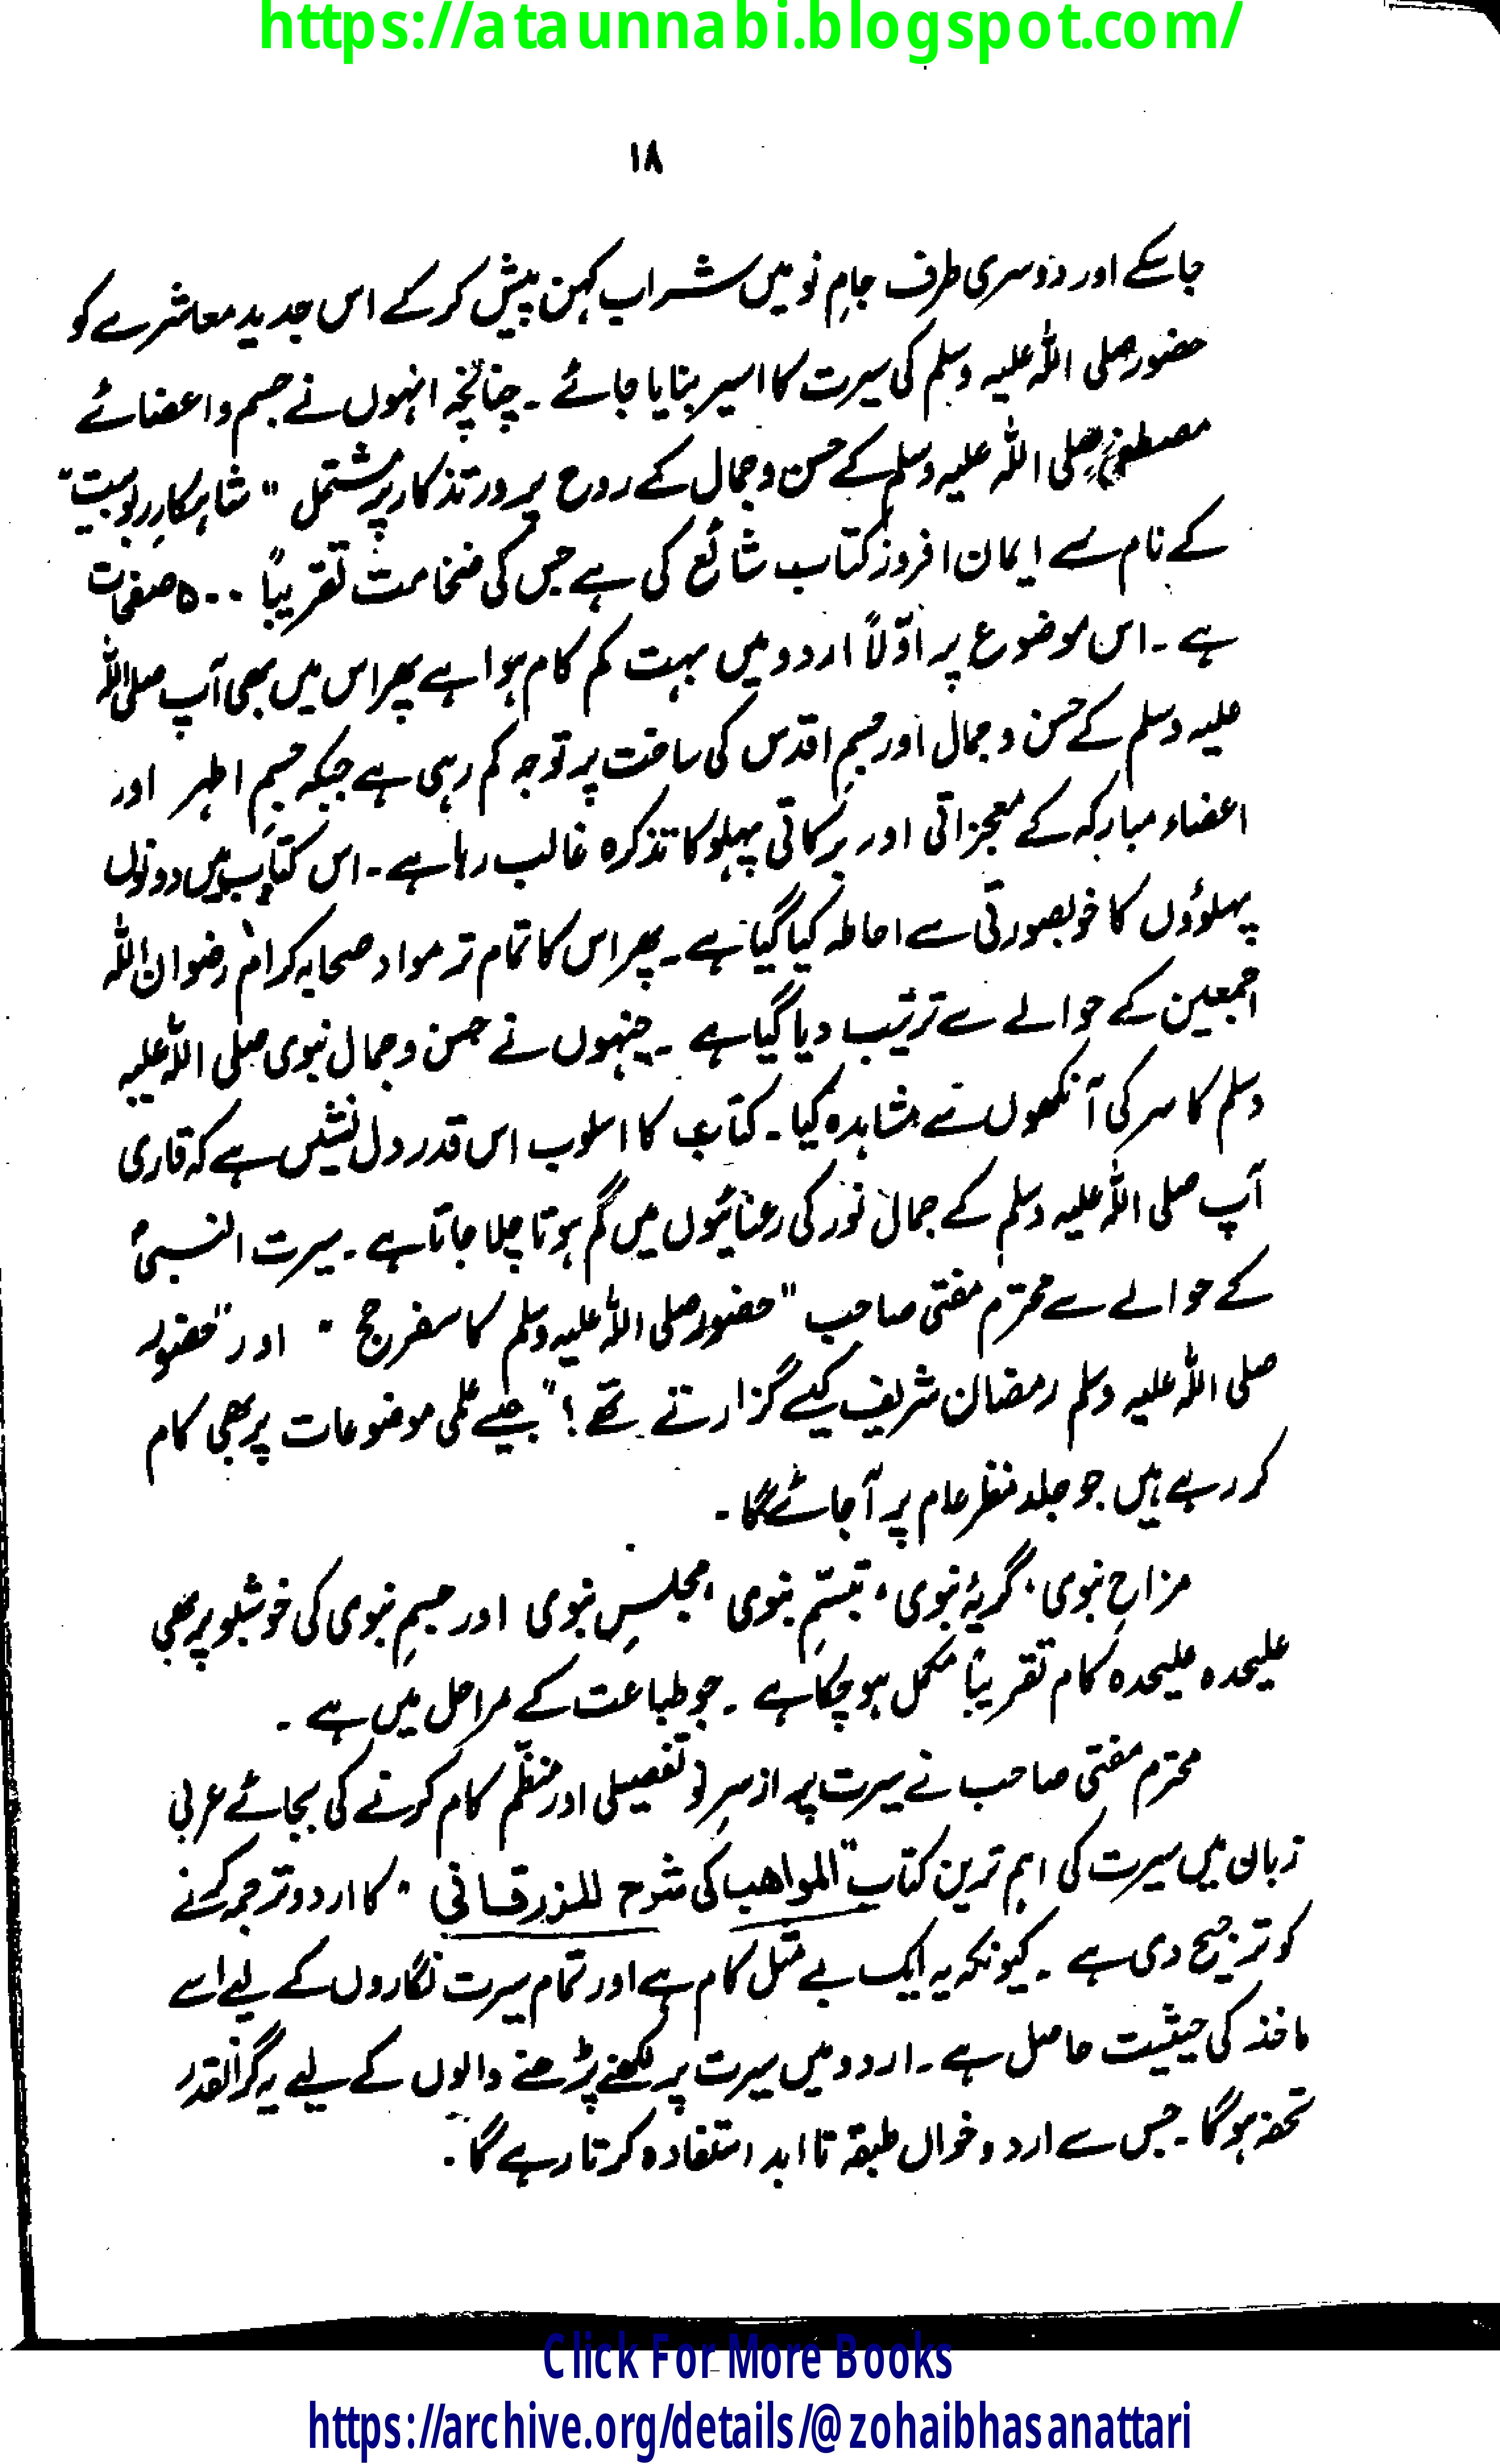 https://ataunnabi.blogspot.com/
۱۸
جا سکے اور دوسری طرف جامِ نو میں شراب کہن پیش کر کے اس جدید معاشرے کو
حضور صلی اللہ علیہ وسلم کی سیرت کا اسیر بنایا جائے ۔ چنانچہ انہوں نے جسم و اعضائے
مصطفیٰ صلی اللہ علیہ وسلم کے حسن و جمال کے روح پرور تذکار پر مشتمل " شاہکارِ ربوبیت "
کے نام سے ایمان افروز کتاب شائع کی ہے جس کی ضخامت تقریباً ۵۰۰ صفحات
ہے ۔ اس موضوع پر اوّلاً اردو میں بہت کم کام ہوا ہے پھر اس میں بھی آپ صلی اللہ
علیہ وسلم کے حسن و جمال اور جسمِ اقدس کی ساخت پر توجہ کم رہی ہے جبکہ جسمِ اطہر اور
اعضاء مبارکہ کے معجزاتی اور برکاتی پہلو کا تذکرہ غالب رہا ہے ۔ اس کتاب میں دونوں
پہلوؤں کا خوبصورتی سے احاطہ کیا گیا ہے ۔ پھر اس کا تمام تر مواد صحابہ کرام رضوان اللہ
اجمعین کے حوالے سے ترتیب دیا گیا ہے ۔ جنہوں نے حسن و جمال نبوی صلی اللہ علیہ
وسلم کا سر کی آنکھوں سے مشاہدہ کیا ۔ کتاب کا اسلوب اس قدر دل نشیں ہے کہ قاری
آپ صلی اللہ علیہ وسلم کے جمال نور کی رعنائیوں میں گم ہوتا چلا جاتا ہے ۔ سیرت النبیؐ
کے حوالے سے محترم مفتی صاحب " حضور صلی اللہ علیہ وسلم کا سفر حج " اور " حضور
صلی اللہ علیہ وسلم رمضان شریف کیسے گزارتے تھے ؟ " جیسے علمی موضوعات پر بھی کام
کر رہے ہیں جو جلد منظر عام پر آ جائے گا ۔
مزاحِ نبوی ، گریۂ نبوی ، تبسّمِ نبوی ، مجلسِ نبوی اور جسمِ نبوی کی خوشبو پر بھی
علیحدہ علیحدہ کام تقریباً مکمل ہو چکا ہے ۔ جو طباعت کے مراحل میں ہے ۔
محترم مفتی صاحب نے سیرت پر از سرِ نو تفصیلی اور منظّم کام کرنے کی بجائے عربی
زبان میں سیرت کی اہم ترین کتاب " المواهب کی شرح للزرقانی " کا اردو ترجمہ کرنے
کو ترجیح دی ہے ۔ کیونکہ یہ ایک بے مثل کام ہے اور تمام سیرت نگاروں کے لیے اسے
ماخذ کی حیثیت حاصل ہے ۔ اردو میں سیرت پر لکھنے پڑھنے والوں کے لیے یہ گرانقدر
تحفہ ہو گا ۔ جس سے اردو خواں طبقہ تا ابد استفادہ کرتا رہے گا ۔
Click For More Books
https://archive.org/details/@zohaibhasanattari